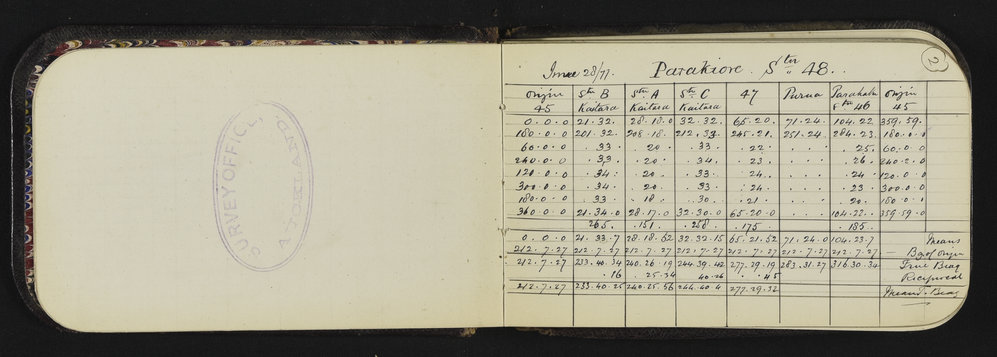 SURVEY OFFICE
2
June 28/77. Parakiore Stn 48.
Origin 45 Stn B Kaitara Stn A Kaitara Stn C Kaitara 47 Purua Parahaki Stn 46 Origin 45
0.0.0 21.32. 28.18.0 32.32. 65.20. 71.24. 104.22 359.59.
180.0.0 201.32. 208.18. 212.33 245.21. 251.24. 284.23. 180.0.0
60.0.0 .33 .20 .33. .22. . . . .25. 60.0.0
240.0.0 .33. .20. .34. .23. . . . .26. 240.2.0
120.0.0 .34. .20. .33. .24. . . . .24. 120.0.0
300.0.0 .34. .20. .33. .24. . . . .23. 300.0.0
180.0.0 .33. .18. .30. .21. . . . .20. 180.0.0
360.0.0 21.34.0 28.17.0 32.30.0 65.20.0 . . . 104.22.. 359.59.0
265. .151. .258. .175 .185.
0.0.0 21.33.7 28.18.52 32.32.15 65.21.52 71.24.0 104.23.7 Means
212.7.27 212.7.27 212.7.27 212.7.27 212.7.27 212.7.27 212.7.27 — Bg of Origin
212.7.27 233.40.34 240.26.19 244.39.42 277.29.19 283.31.27 316.30.34 True Brag
.16 .25.34 40.26 .45 Reciprocal
212.7.27 233.40.25 240.25.56 244.40.4 277.29.32 Mean T. Brag